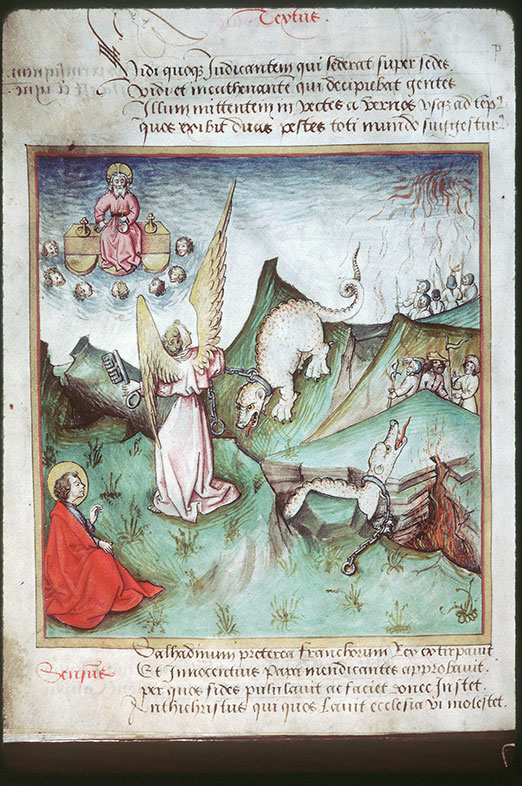 Textus.
Vidi quoque Iudicantem qui sederat super sedes
Vidi et incathenante qui decipiebat gentes
Illum mittentem in vectes a vernos usque ad
Quos exibit duas pestes toti mundo
Salhadinum preterea Francorum Rex extirpauit
Sensus Et Innocentius Papa mendicantes approbauit.
per quos fides pululauit ac faciet donec Instet.
Anthichristus qui quos Lauit ecclesia vi molestet.